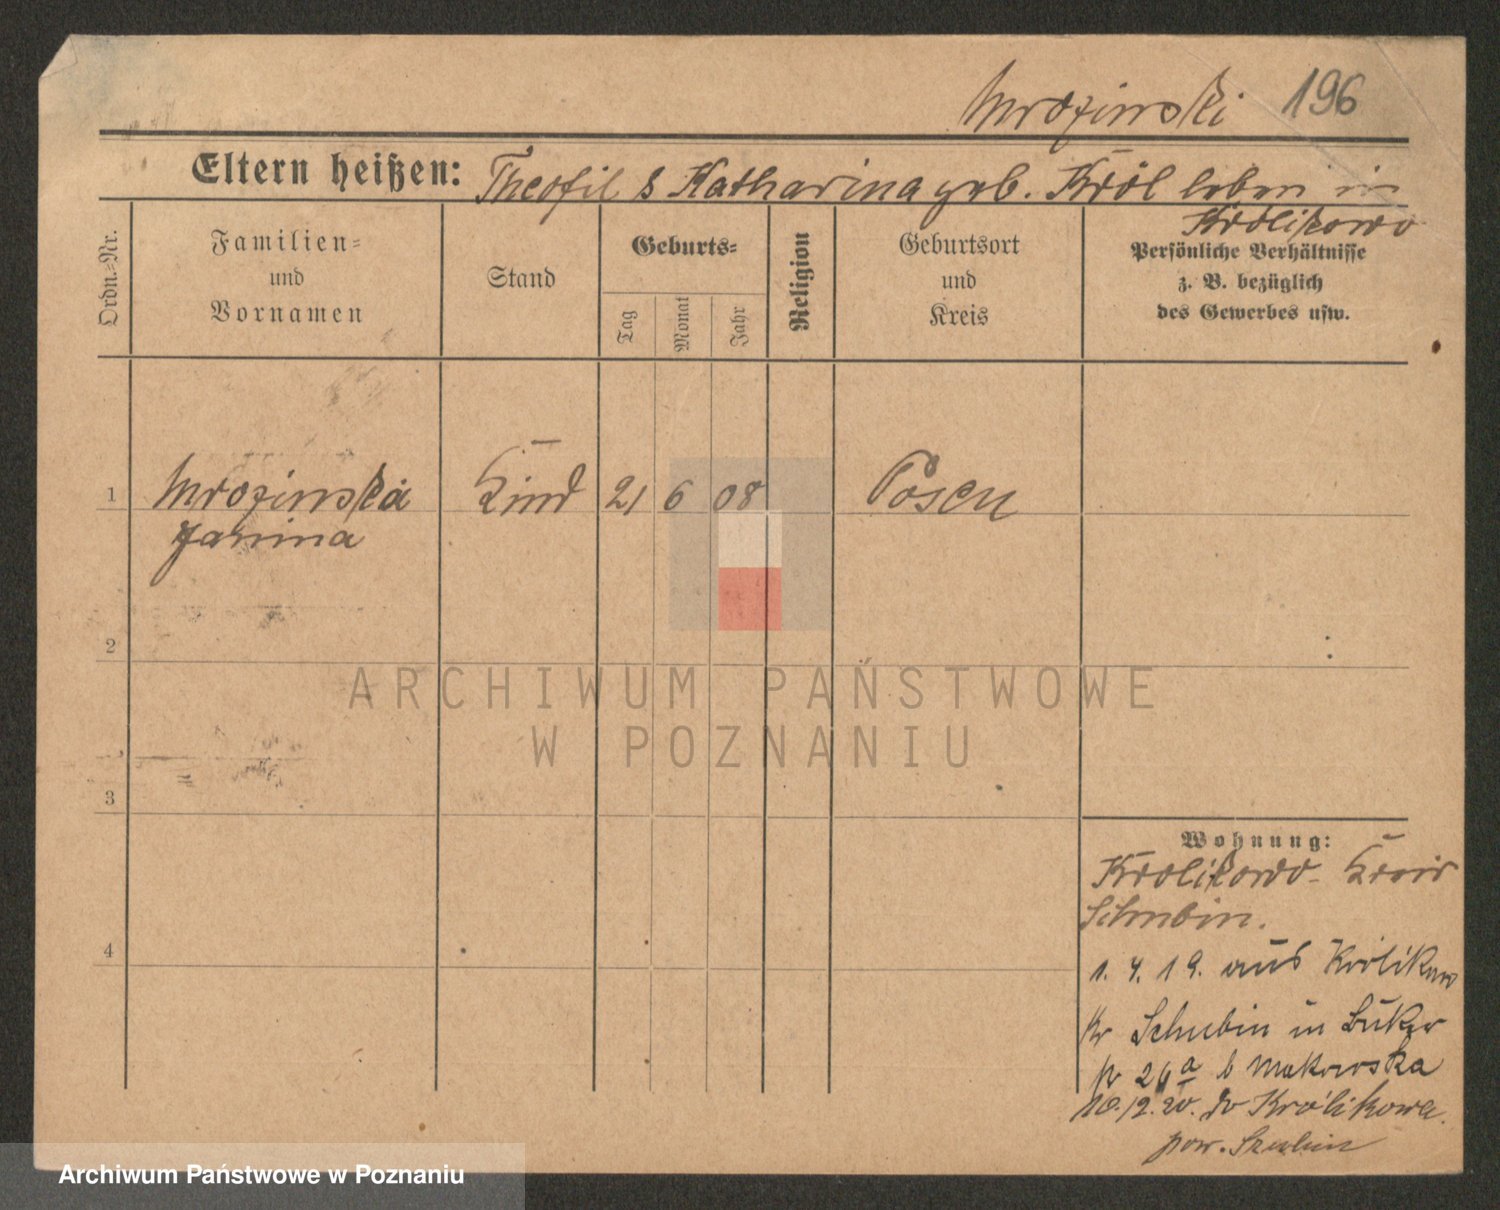 Mrozinski 196
Eltern heißen: Theofil & Katharina geb. Król leben in
Królikowo
Ordn.-Nr.
Familien-
und
Vornamen
Stand
Geburts-
Tag
Monat
Jahr
Religion
Geburtsort
und
Kreis
Persönliche Verhältnisse
z. B. bezüglich
des Gewerbes usw.
1 Mrozinska Kind 21 6 08 Posen
Janina
2
ARCHIWUM PAŃSTWOWE
W POZNANIU
3
Wohnung:
Krolikowo Kreis
Schubin.
4
1. 4. 19. aus Krolikowo
Kr Schubin in Buker
26a b Makowska
10.12.20. do Królikowa.
pow. Szubin
Archiwum Państwowe w Poznaniu